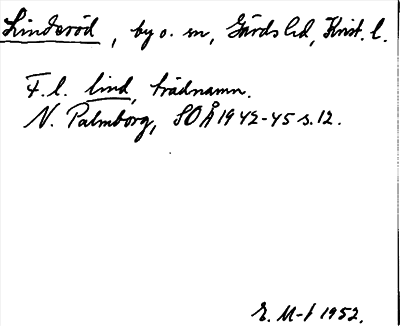 Linderöd, by o. sn, Gärds hd, Krist. l.
F. l. lind, trädnamn.
N. Palmborg, SOÅ 1942-45 s. 12.
E. M-t 1952.